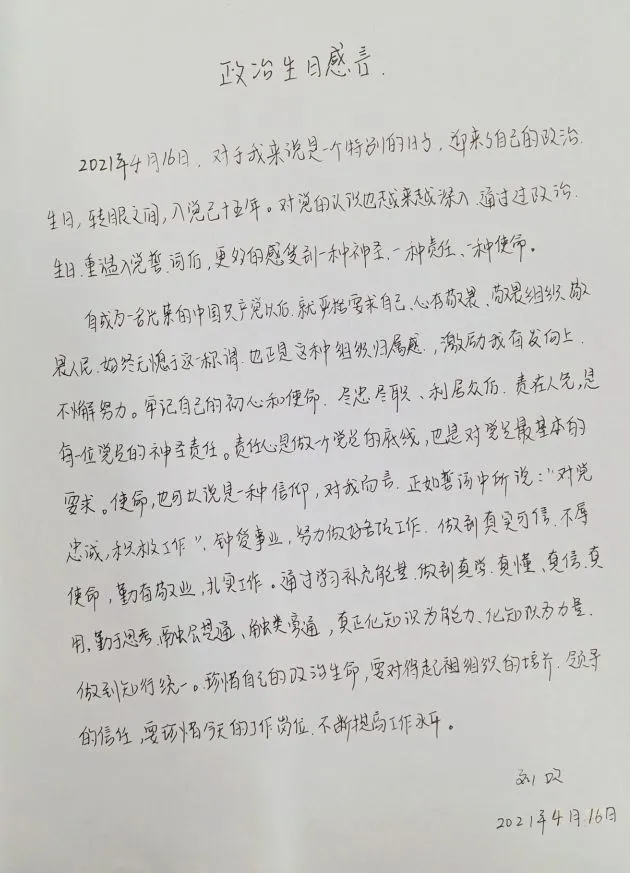 政治生日感言.
2021年4月16日，对于我来说是一个特别的日子，迎来了自己的政治
生日，转眼之间，入党已十五年。对党的认识也越来越深入.通过过政治
生日、重温入党誓词后，更多的感受到一种神圣、一种责任、一种使命。
自成为一名光荣的中国共产党以后.就严格要求自己、心有敬畏、敬畏组织、敬
畏人民、始终无愧于这一称谓.也正是这种组织归属感，激励我奋发向上.
不懈努力。牢记自己的初心和使命.尽忠尽职、利居众后.责在人先，是
每一位党员的神圣责任。责任心是做一个党员的底线，也是对党员最基本的
要求。使命，也可以说是一种信仰，对我而言.正如誓词中所说：“对党
忠诚，积极工作”，钟爱事业，努力做好各项工作.做到真实可信.不辱
使命，勤奋敬业，扎实工作。通过学习补充能量.做到真学.真懂、真信.真
用.勤于思考.融会贯通、触类旁通，真正化知识为能力、化知识为力量.
做到知行统一。珍惜自己的政治生命，要对得起组织的培养.领导
的信任，要珍惜今天的工作岗位.不断提高工作水平。
刘
2021年4月16日